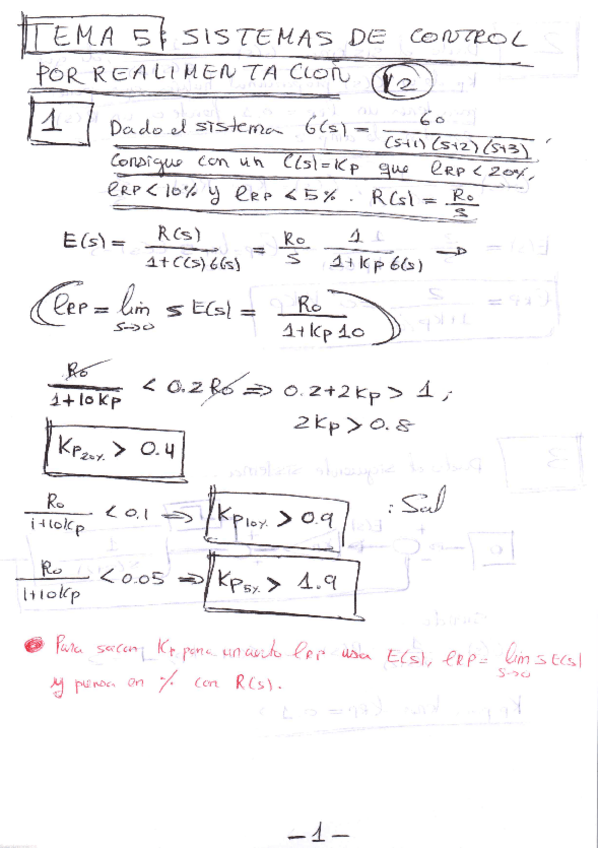 TEMA 5: SISTEMAS DE CONTROL
POR REALIMENTACION K2
1 Dado el sistema G(s) = 60 / (s+1)(s+2)(s+3).
Consigue con un C(s)=Kp que eRP<20%,
eRP<10% y eRP<5%. R(s) = Ro/s
E(s) = R(s)/(1+C(s)G(s)) = Ro/s 1/(1+Kp G(s)) →
eRP = lim s→0 s E(s) = Ro/(1+Kp10)
Ro/(1+10Kp) < 0.2Ro ⇒ 0.2+2Kp > 1;
2Kp > 0.8
Kp20% > 0.4
Ro/(1+10Kp) < 0.1 ⇒ Kp10% > 0.9 : Sol
Ro/(1+10Kp) < 0.05 ⇒ Kp5% > 1.9
Para sacar Kp para un cierto eRP usa E(s), eRP = lim s→0 s E(s)
y piensa en % con R(s).
-1-